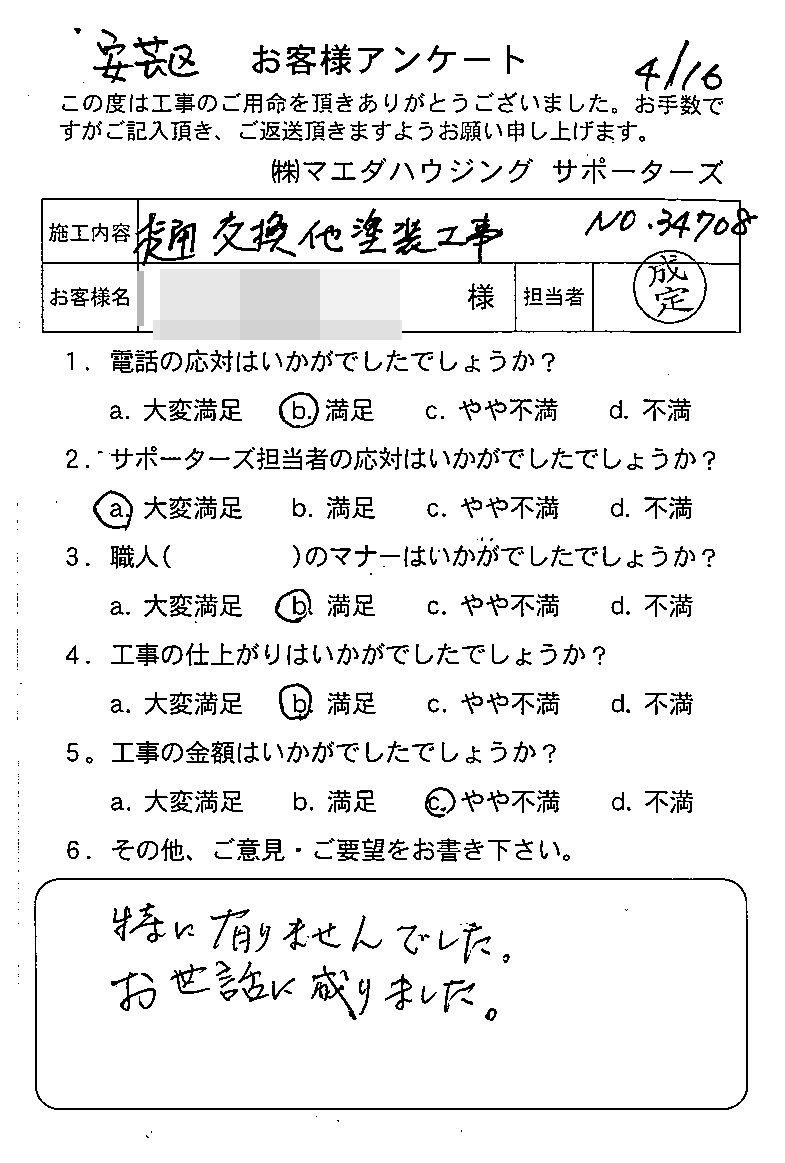 安芸区 お客様アンケート 4/16
この度は工事のご用命を頂きありがとうございました。お手数で
すがご記入頂き、ご返送頂きますようお願い申し上げます。
㈱マエダハウジング サポーターズ
施工内容 樋 交換他塗装工事 NO.34708
お客様名 様 担当者 成定
1. 電話の応対はいかがでしたでしょうか?
a. 大変満足 b. 満足 c. やや不満 d. 不満
2. サポーターズ担当者の応対はいかがでしたでしょうか?
a. 大変満足 b. 満足 c. やや不満 d. 不満
3. 職人( )のマナーはいかがでしたでしょうか?
a. 大変満足 b. 満足 c. やや不満 d. 不満
4. 工事の仕上がりはいかがでしたでしょうか?
a. 大変満足 b. 満足 c. やや不満 d. 不満
5。工事の金額はいかがでしたでしょうか?
a. 大変満足 b. 満足 c. やや不満 d. 不満
6. その他、ご意見・ご要望をお書き下さい。
特に有りませんでした。
お世話に成りました。